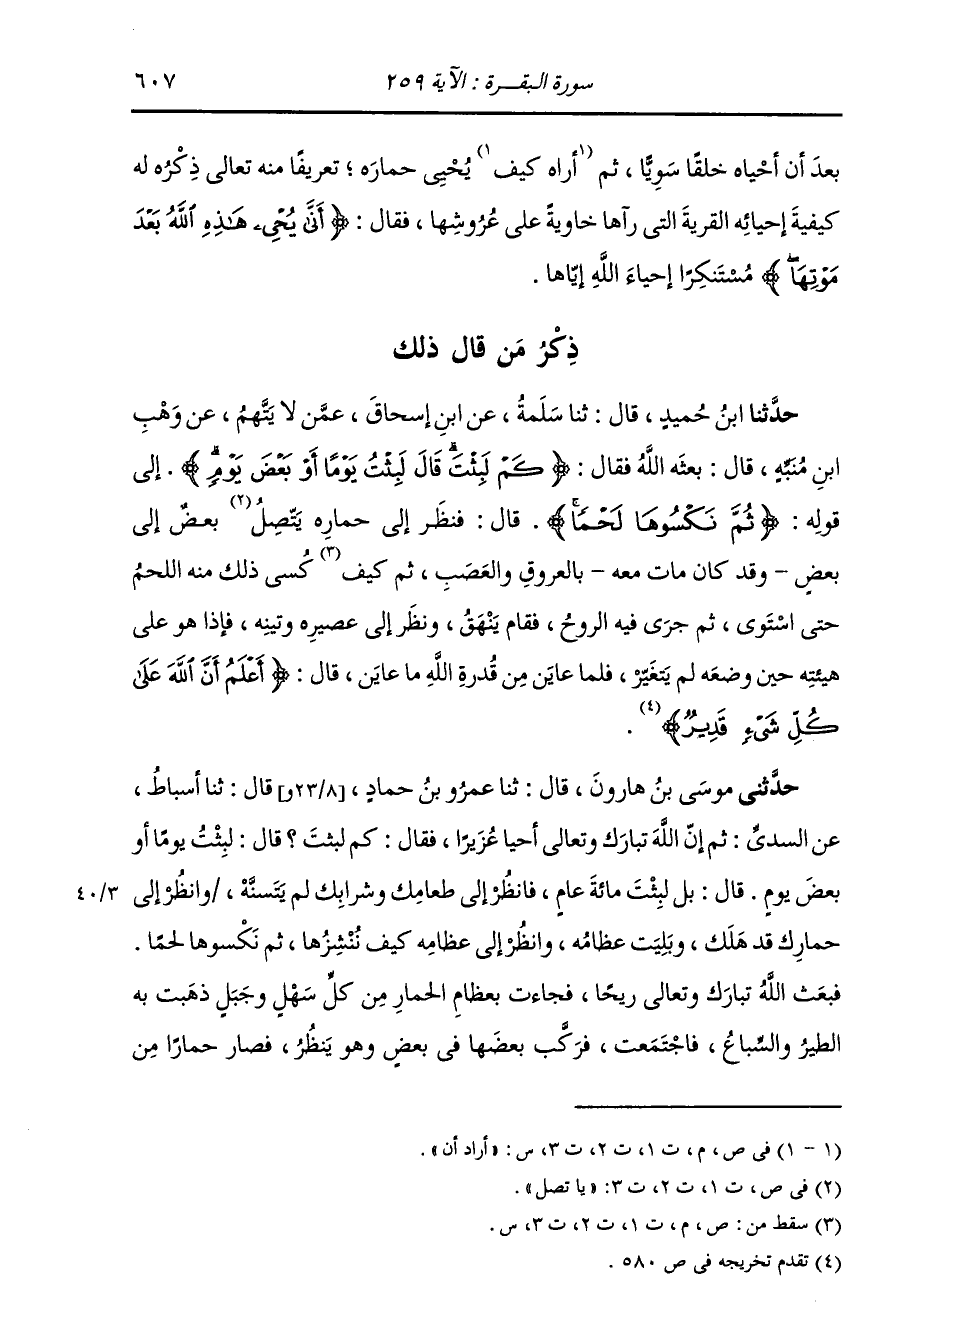 سورة البقرة : الآية ٢٥٩ ٦٠٧
بعدَ أن أحْياه خلقًا سَوِيًّا ، ثم (١أراه كيف١) يُحْيِي حمارَه ؛ تعريفًا منه تعالى ذِكْرُه له
كيفيةَ إحيائِه القريةَ التى رآها خاويةً على عُرُوشِها ، فقال : ﴿ أَنَّىٰ يُحْىِۦ هَٰذِهِ ٱللَّهُ بَعْدَ
مَوْتِهَاۖ ﴾ مُسْتَنكِرًا إحياءَ اللَّهِ إيّاها .
ذِكْرُ مَن قال ذلك
حدَّثنا ابنُ حُميدٍ ، قال : ثنا سَلَمةُ ، عن ابنِ إسحاقَ ، عمَّن لا يَتَّهِمُ ، عن وَهْبِ
ابنِ مُنَبِّهٍ ، قال : بعثه اللَّهُ فقال : ﴿ كَمْ لَبِثْتَۖ قَالَ لَبِثْتُ يَوْمًا أَوْ بَعْضَ يَوْمٍۖ ﴾ . إلى
قولِه : ﴿ ثُمَّ نَكْسُوهَا لَحْمًاۚ ﴾ . قال : فنظَر إلى حمارِه يَتَّصِلُ(٢) بعضٌ إلى
بعضٍ – وقد كان مات معه – بالعروقِ والعَصَبِ ، ثم كيف(٣) كُسى ذلك منه اللحمُ
حتى اسْتَوى ، ثم جرَى فيه الروحُ ، فقام يَنْهَقُ ، ونظَر إلى عصيرِه وتينِه ، فإذا هو على
هيئتِه حين وضعَه لم يَتغَيَّرْ ، فلما عايَن مِن قُدرةِ اللَّهِ ما عايَن ، قال : ﴿ أَعْلَمُ أَنَّ ٱللَّهَ عَلَىٰ
كُلِّ شَىْءٍ قَدِيرٌ ﴾(٤) .
حدَّثنى موسَى بنُ هارونَ ، قال : ثنا عمرُو بنُ حمادٍ ، [٢٣/٨و] قال : ثنا أسباطُ ،
عن السدىِّ : ثم إنّ اللَّهَ تبارَك وتعالى أحيا عُزَيرًا ، فقال : كم لبثتَ ؟ قال : لبِثْتُ يومًا أو
بعضَ يومٍ . قال : بل لبِثْتَ مائةَ عامٍ ، فانظُرْ إلى طعامِك وشرابِك لم يَتَسنَّهْ ، /وانظُرْ إلى ٤٠/٣
حمارِك قد هَلَك ، وبَلِيَت عظامُه ، وانظُرْ إلى عظامِه كيف نُنْشِزُها ، ثم نَكْسوها لحمًا .
فبعَث اللَّهُ تبارَك وتعالى ريحًا ، فجاءت بعظامِ الحمارِ مِن كلِّ سَهْلٍ وجَبَلٍ ذهَبت به
الطيرُ والسِّباعُ ، فاجْتَمَعت ، فرَكَّب بعضَها فى بعضٍ وهو يَنظُرُ ، فصار حمارًا مِن
(١ – ١) فى ص ، م ، ت ١، ت ٢، ت ٣، س : «أراد أن» .
(٢) فى ص، ت ١، ت ٢، ت ٣: «يا تصل» .
(٣) سقط من : ص ، م ، ت ١، ت ٢، ت ٣، س .
(٤) تقدم تخريجه فى ص ٥٨٠ .